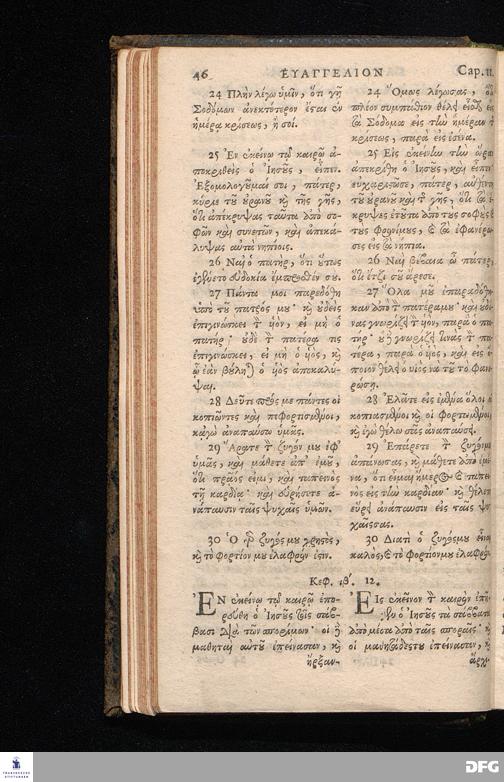 46 ΕΥΑΓΓΕΛΙΟΝ Cap. 11.
24 Πλὴν λέγω ὑμῖν, ὅτι γῇ
Σοδόμων ἀνεκτότερον ἔσται ἐν
ἡμέρᾳ κρίσεως, ἢ σοί.
25 Ἐν ἐκείνῳ τῷ καιρῷ ἀ-
ποκριθεὶς ὁ Ἰησοῦς, εἶπεν.
Ἐξομολογοῦμαί σοι, πάτερ,
κύριε τοῦ οὐρανοῦ καὶ τῆς γῆς,
ὅτι ἀπέκρυψας ταῦτα ἀπὸ σο-
φῶν καὶ συνετῶν, καὶ ἀπεκά-
λυψας αὐτὰ νηπίοις.
26 Ναὶ ὁ πατὴρ, ὅτι οὕτως
ἐγένετο εὐδοκία ἔμπροσθέν σου.
27 Πάντα μοι παρεδόθη
ὑπὸ τοῦ πατρός μου· καὶ οὐδεὶς
ἐπιγινώσκει τὸν υἱὸν, εἰ μὴ ὁ
πατήρ· οὐδὲ τὸν πατέρα τις
ἐπιγινώσκει, εἰ μὴ ὁ υἱὸς, καὶ
ᾧ ἐὰν βούληται ὁ υἱὸς ἀποκαλύ-
ψαι.
28 Δεῦτε πρός με πάντες οἱ
κοπιῶντες καὶ πεφορτισμένοι,
κἀγὼ ἀναπαύσω ὑμᾶς.
29 Ἄρατε τὸν ζυγόν μου ἐφ'
ὑμᾶς, καὶ μάθετε ἀπ' ἐμοῦ,
ὅτι πρᾷός εἰμι, καὶ ταπεινὸς
τῇ καρδίᾳ· καὶ εὑρήσετε ἀ-
νάπαυσιν ταῖς ψυχαῖς ὑμῶν.
30 Ὁ γὰρ ζυγός μου χρηστὸς,
καὶ τὸ φορτίον μου ἐλαφρόν ἐστιν.
24 Ὅμως λέγω σας, ὅτι
πλέον συμπάθιον θέλει
τὰ Σόδομα εἰς τὴν ἡμέραν τῆς
κρίσεως, παρὰ εἰς ἐσένα.
25 Εἰς ἐκείνην τὴν ὥραν
ἀπεκρίθη ὁ Ἰησοῦς, καὶ εἶπε
εὐχαριστῶ σε, πατερ,
τοῦ οὐρανοῦ καὶ τῆς γῆς, ὅτι
κρυψες ἐτοῦτα ἀπὸ τοὺς σοφοὺς
τοὺς φρονίμους, καὶ τὰ ἐφανέρω-
σες εἰς τὰ νήπια.
26 Ναὶ βέβαια ὦ πάτερ,
ὅτι ἔτζι σοῦ ἄρεσε.
27 Ὅλα μοῦ ἐπαραδόθη-
καν ἀπὸ τὸν πατέρα μου· καὶ
νας γνωρίζει τὸν υἱὸν, παρὰ ὁ πα-
τήρ· γνωρίζει τινας τὸν πα-
τέρα, παρὰ ὁ υἱὸς, καὶ εἰς ὅ-
ποιον θελει ὁ υἱὸς νὰ τὸ φανε-
ρώσῃ.
28 Ἐλᾶτε εἰς ἐμένα ὅλοι οἱ
κοπιασμένοι καὶ οἱ φορτωμένοι
καὶ ἐγὼ θέλω σᾶς ἀναπαύσει.
29 Ἐπάρετε τὸν ζυγόν μου
ἀπάνω σας, καὶ μάθετε ἀπὸ ἐμέ-
να, ὅτι εἶμαι ἥμερος καὶ ταπει-
νὸς εἰς τὴν καρδίαν· καὶ θέλετε
εὕρει ἀνάπαυσιν εἰς ταῖς ψυ-
χαῖς σας.
30 Διατὶ ὁ ζυγός μου εἶναι
καλὸς, καὶ τὸ φορτίον μου ἐλαφρόν.
Κεφ. ιβʹ. 12.
ἘΝ ἐκείνῳ τῷ καιρῷ ἐπο-
ρεύθη ὁ Ἰησοῦς τοῖς σάβ-
βασι διὰ τῶν σπορίμων· οἱ δὲ
μαθηταὶ αὐτοῦ ἐπείνασαν, καὶ
ἤρξαν-
ἘΙς ἐκεῖνον τὸν καιρὸν
ὁ Ἰησοῦς τὰ σάββατα
ἀπὸ μέσα ἀπὸ ταῖς σποραῖς· καὶ
οἱ μαθηταὶ ἐπείνασαν, καὶ
ἀρχι-
DFG